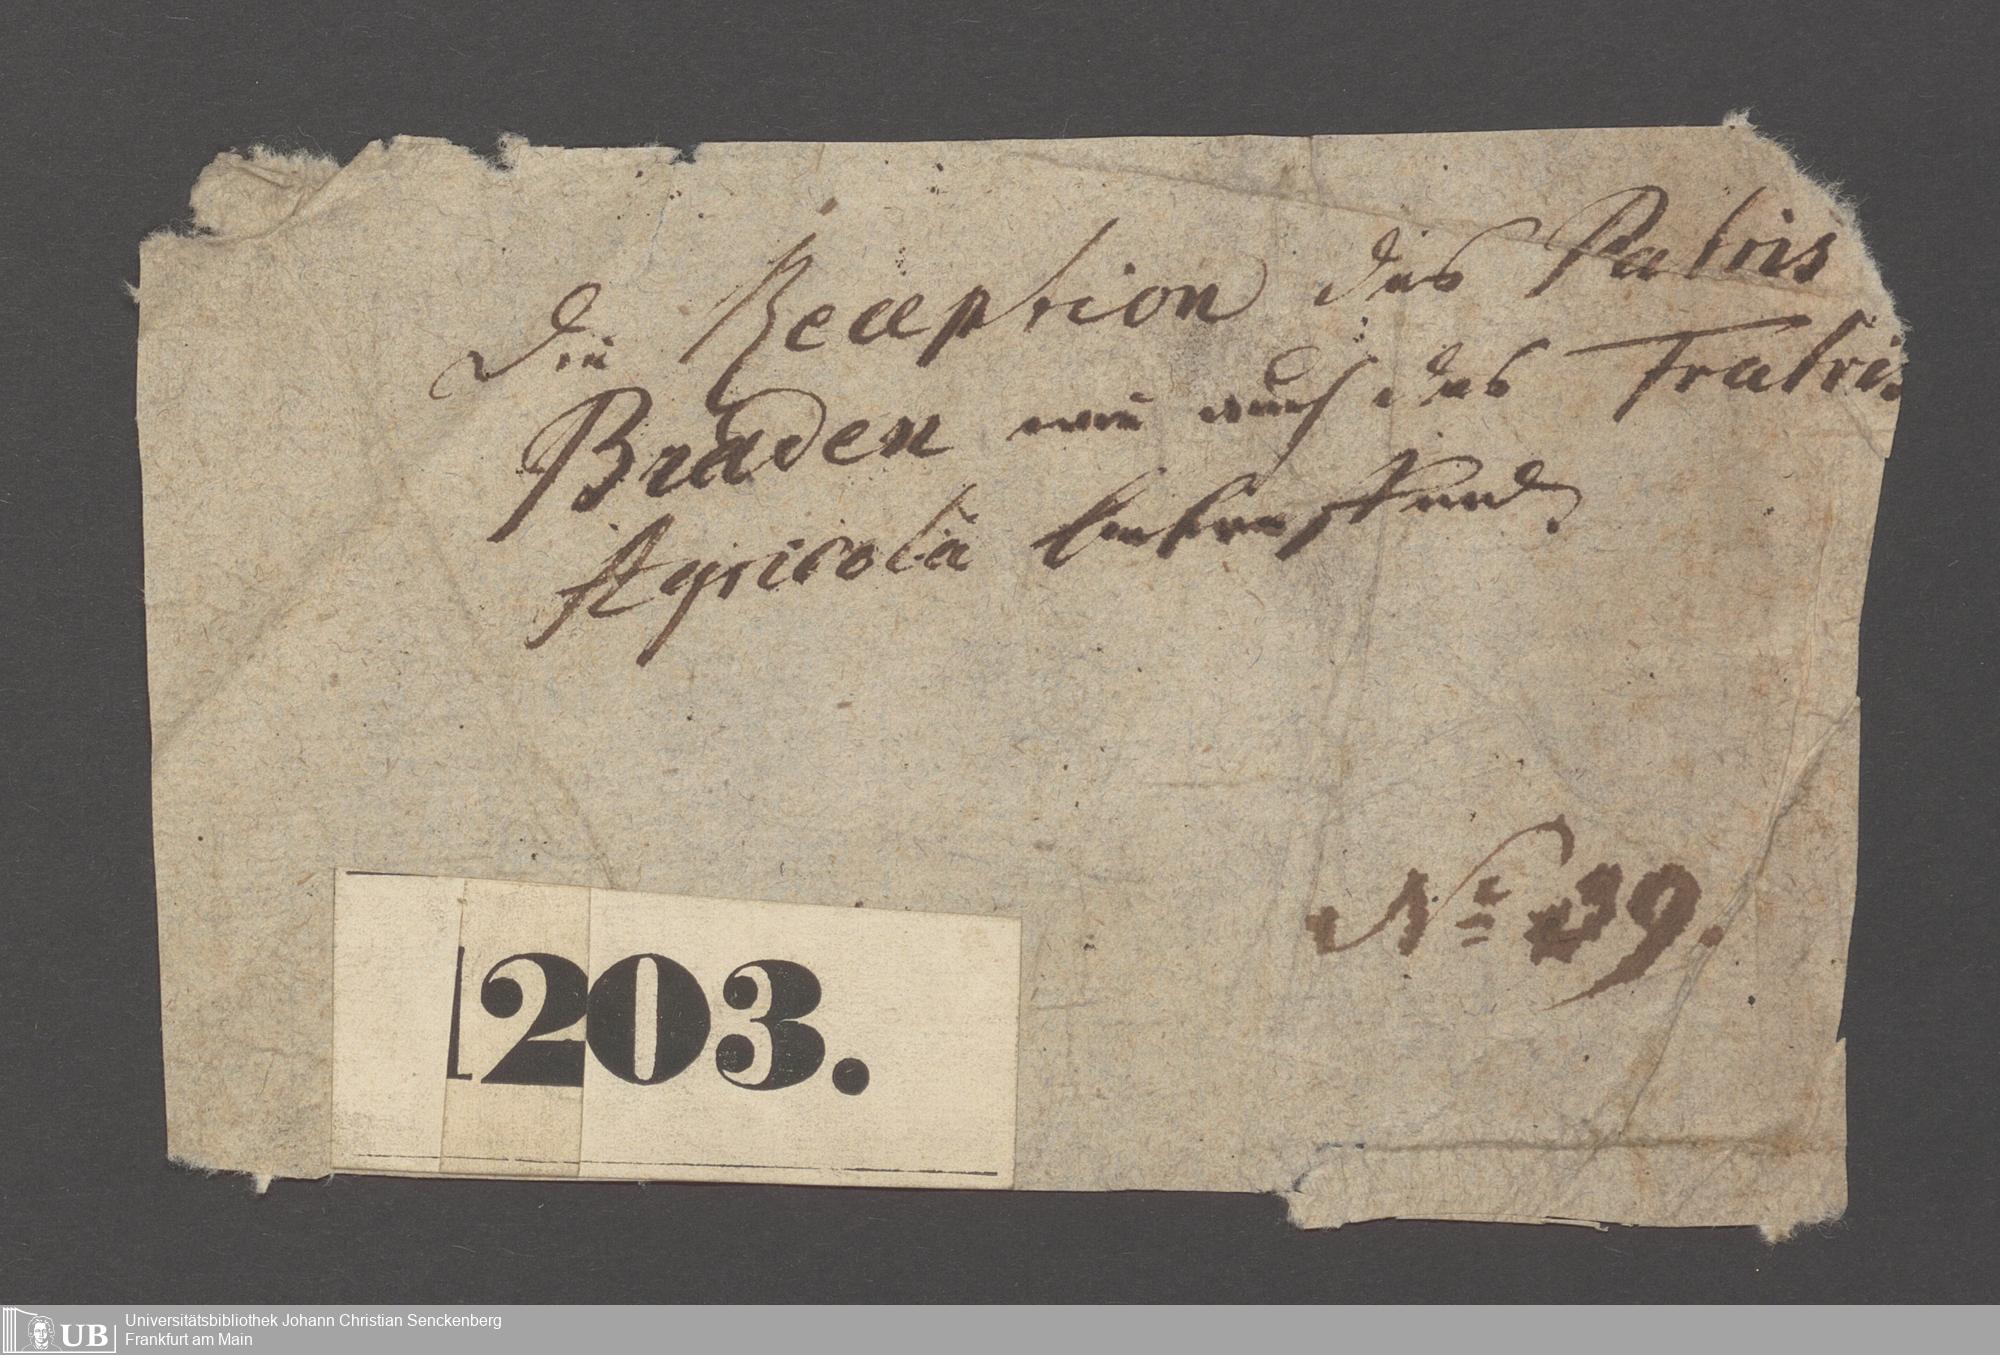 Die Reception des Patris
Braden wie auch des Fratris
Agricola betreffend.
No 39.
1203.
UB
Universitätsbibliothek Johann Christian Senckenberg
Frankfurt am Main